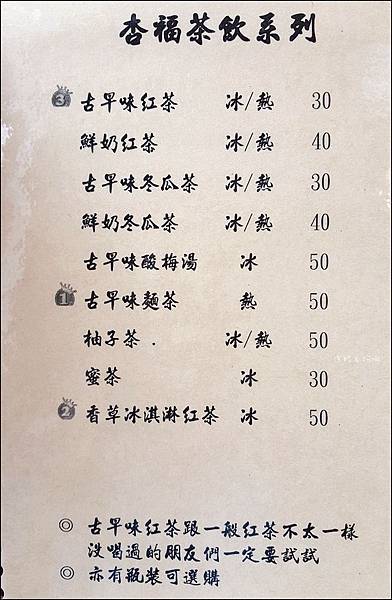 杏福茶飲系列
3 古早味紅茶 冰/熱 30
鮮奶紅茶 冰/熱 40
古早味冬瓜茶 冰/熱 30
鮮奶冬瓜茶 冰/熱 40
古早味酸梅湯 冰 50
1 古早味麵茶 熱 50
柚子茶. 冰/熱 50
蜜茶 冰 30
2 香草冰淇淋紅茶 冰 50
◎ 古早味紅茶跟一般紅茶不太一樣
沒喝過的朋友們一定要試試
◎ 亦有瓶裝可選購